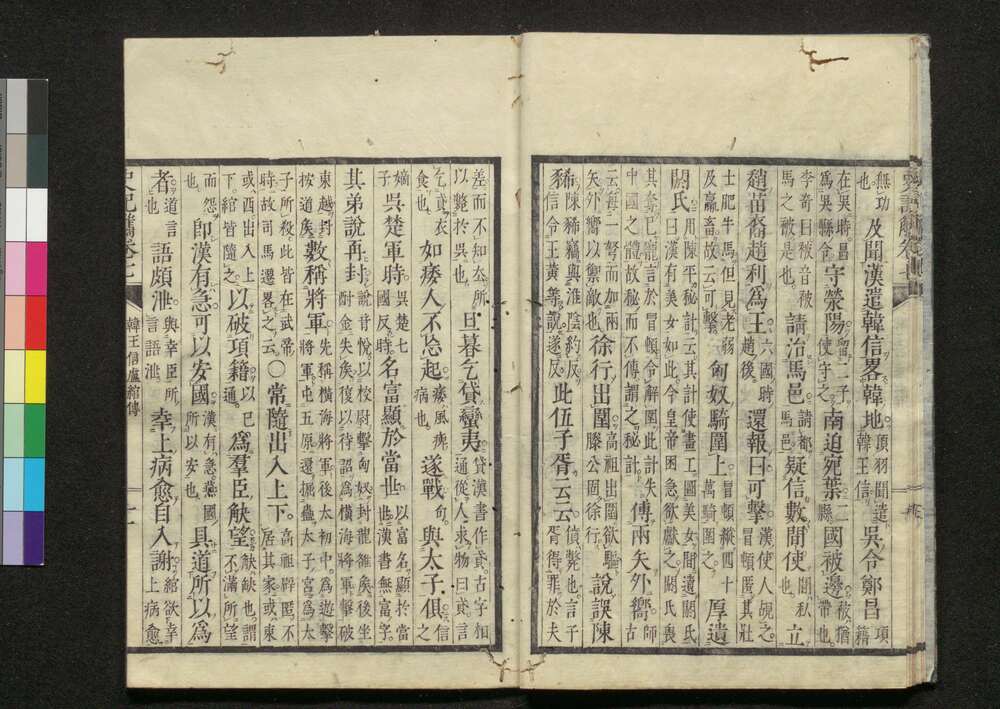 無功也 及聞漢遣韓信畧韓地 項羽聞遣韓王信 吳令鄭昌 項籍
在吳時昌為吳縣令 守滎陽 留二子使守之 南迫宛葉 二縣 國被邊 被猶帶也
李奇曰被音被馬之被是也 請治馬邑 請都馬邑 疑信數間使 間私也 立
趙苗裔趙利為王 六國時趙後 還報曰可擊 漢使人覘之冒頓匿其壯
士肥牛馬但見老弱及羸畜故云可擊 匈奴騎圍上 冒頓縱四十萬騎圍之 厚遺
閼氏 用陳平秘計云其計使畫工圖美女間遺閼氏曰漢有美女如此今皇帝困急欲獻之閼氏畏
其奪己寵言於冒頓令解圍此計失中國之體故秘而不傳謂之秘計 傅兩矢外嚮 師古
云每一弩而加兩矢外嚮以禦敵也 徐行出圍 高祖出圍欲驅滕公固徐行 說誤陳
豨 陳豨竊與淮陰約反信令王黃等說遂反 此伍子胥云云 僨斃也言子胥得罪於夫
差而不知去所以斃於吳也 旦暮乞貸蠻夷 貸漢書作貣古字相通從人求物曰貣言
乞貣衣食也 如痿人不忘起 痿風痺病也 遂戰 句 與太子俱 信之
嫡子 吳楚軍時 吳楚七國反時 名富顯於當世 以富名顯於當世漢書無富字
其弟說再封 說音悅以校尉擊匈奴封龍雒矦後坐酎金失矦復以待詔為橫海將軍擊破
東越封按道矦 數稱將軍 先稱橫海將軍後太初中為遊擊將軍屯五原還掘蠱太子宮為太
子所殺此皆在武帝時故司馬遷畧之云 〇常隨出入上下 高祖辟匿不居其家或東
或西出入上下綰皆隨之 以破項籍 以已通 為羣臣觖望 觖缺也謂不滿所望
而怨也 即漢有急可以安國 漢有急燕國所以安也 具道所以為
者 道言也 語頗泄 與幸臣所言語泄 幸上病愈自入謝 綰欲幸上病愈
韓王信盧綰傳